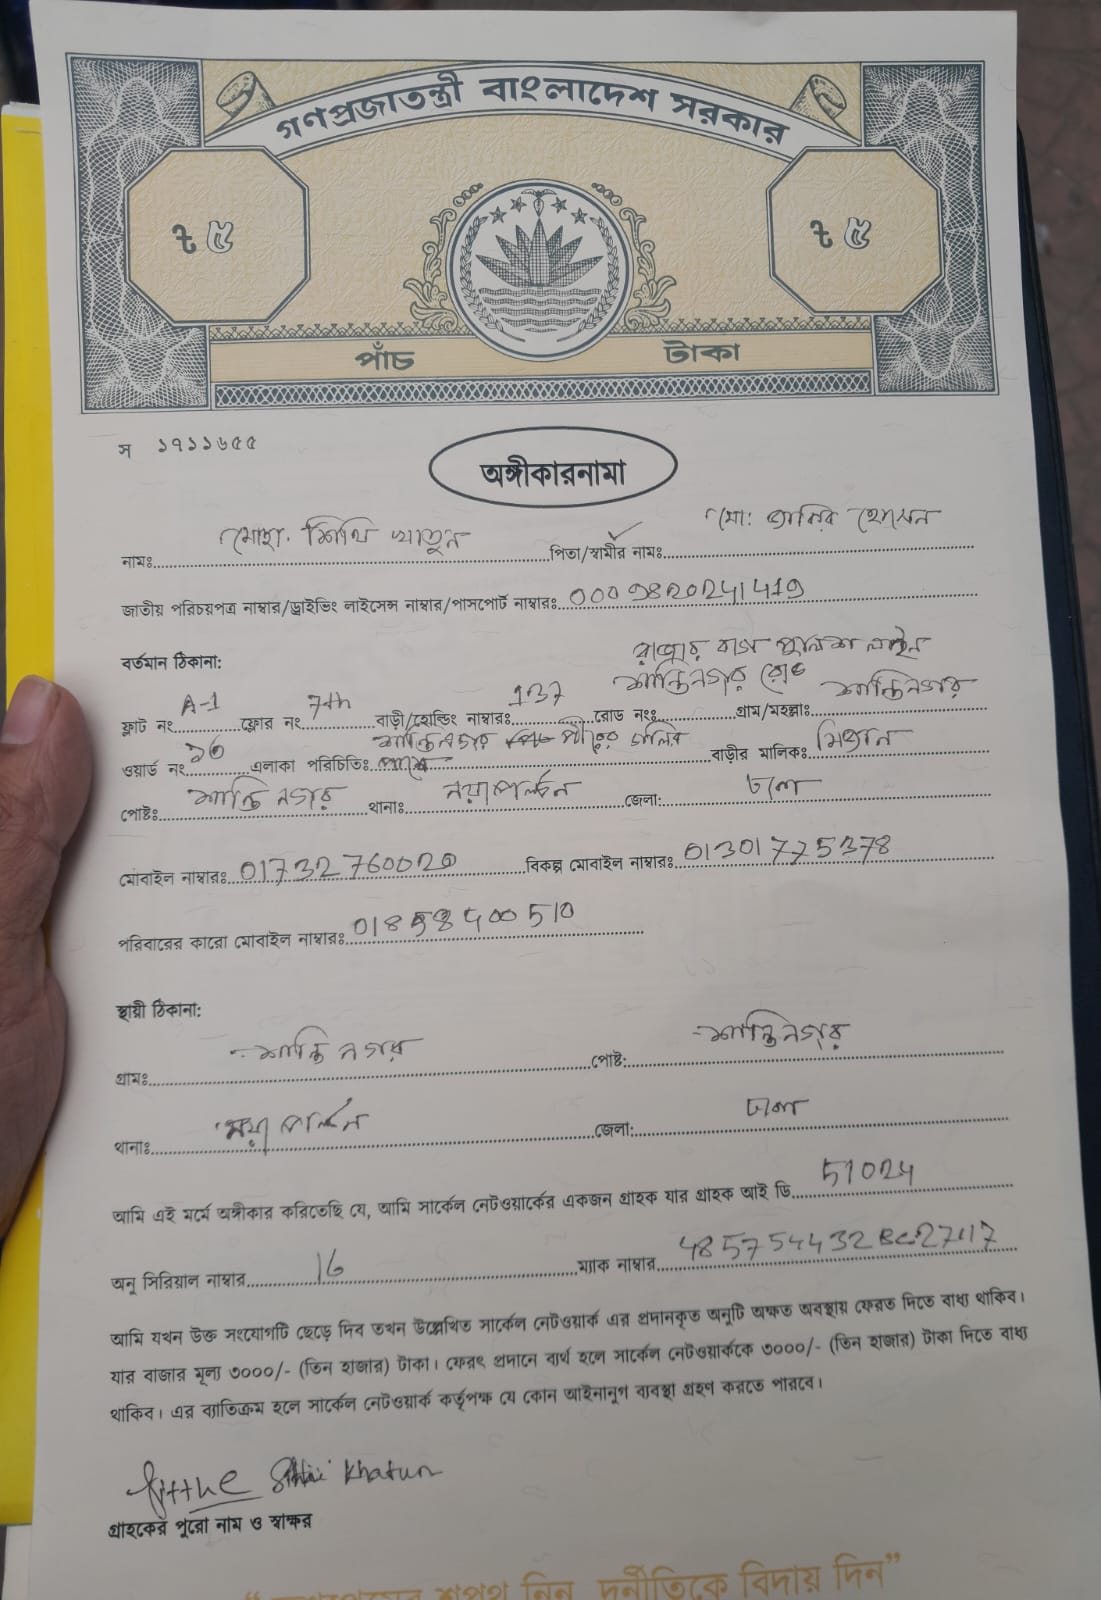 গণপ্রজাতন্ত্রী বাংলাদেশ সরকার
৳ ৫
৳ ৫
পাঁচ টাকা
স ১৭১১৬৫৫
অঙ্গীকারনামা
নামঃ মোছা. শিথি খাতুন পিতা/স্বামীর নামঃ মো: হোসেন
জাতীয় পরিচয়পত্র নাম্বার/ড্রাইভিং লাইসেন্স নাম্বার/পাসপোর্ট নাম্বারঃ
বর্তমান ঠিকানা:
পুলিশ লাইন
ফ্লাট নং A-1 ফ্লোর নং 7th বাড়ী/হোল্ডিং নাম্বারঃ 137 রোড নংঃ শান্তিনগর রোড গ্রাম/মহল্লাঃ শান্তিনগর
ওয়ার্ড নং এলাকা পরিচিতিঃ শান্তিনগর পীরের গলির পাশে বাড়ীর মালিকঃ
পোষ্টঃ শান্তি নগর থানাঃ নয়া পল্টন জেলা: ঢাকা
মোবাইল নাম্বারঃ বিকল্প মোবাইল নাম্বারঃ 01301775378
পরিবারের কারো মোবাইল নাম্বারঃ
স্থায়ী ঠিকানা:
গ্রামঃ শান্তি নগর পোষ্ট: শান্তিনগর
থানাঃ নয়া পল্টন জেলা: ঢাকা
আমি এই মর্মে অঙ্গীকার করিতেছি যে, আমি সার্কেল নেটওয়ার্কের একজন গ্রাহক যার গ্রাহক আই ডি 51024
অনু সিরিয়াল নাম্বার 16 ম্যাক নাম্বার
আমি যখন উক্ত সংযোগটি ছেড়ে দিব তখন উল্লেখিত সার্কেল নেটওয়ার্ক এর প্রদানকৃত অনুটি অক্ষত অবস্থায় ফেরত দিতে বাধ্য থাকিব।
যার বাজার মূল্য ৩০০০/- (তিন হাজার) টাকা। ফেরৎ প্রদানে ব্যর্থ হলে সার্কেল নেটওয়ার্ককে ৩০০০/- (তিন হাজার) টাকা দিতে বাধ্য
থাকিব। এর ব্যতিক্রম হলে সার্কেল নেটওয়ার্ক কর্তৃপক্ষ যে কোন আইনানুগ ব্যবস্থা গ্রহণ করতে পারবে।
Khatun
গ্রাহকের পুরো নাম ও স্বাক্ষর
শপথ নিন, দুর্নীতিকে বিদায় দিন”